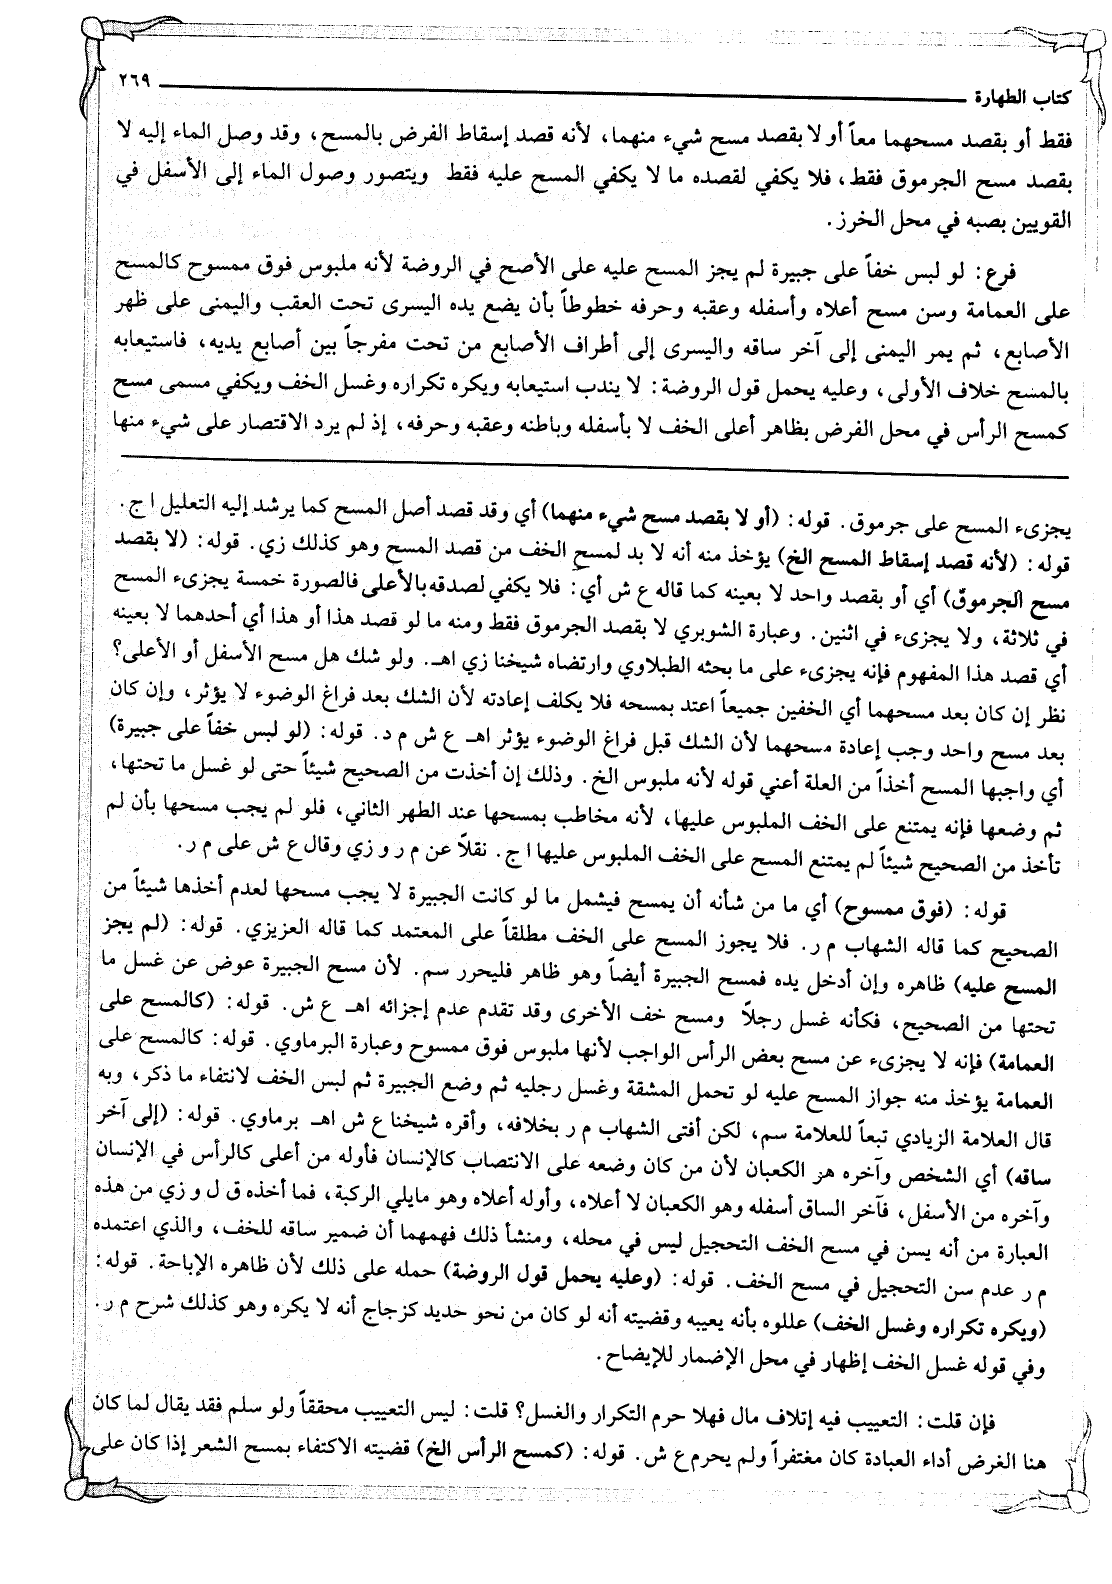 كتاب الطهارة ٢٦٩
فقط أو بقصد مسحهما معاً أو لا بقصد مسح شيء منهما، لأنه قصد إسقاط الفرض بالمسح، وقد وصل الماء إليه لا
بقصد مسح الجرموق فقط، فلا يكفي لقصده ما لا يكفي المسح عليه فقط ويتصور وصول الماء إلى الأسفل في
القويين بصبه في محل الخرز.
فرع: لو لبس خفاً على جبيرة لم يجز المسح عليه على الأصح في الروضة لأنه ملبوس فوق ممسوح كالمسح
على العمامة وسن مسح أعلاه وأسفله وعقبه وحرفه خطوطاً بأن يضع يده اليسرى تحت العقب واليمنى على ظهر
الأصابع، ثم يمر اليمنى إلى آخر ساقه واليسرى إلى أطراف الأصابع من تحت مفرجاً بين أصابع يديه، فاستيعابه
بالمسح خلاف الأولى، وعليه يحمل قول الروضة: لا يندب استيعابه ويكره تكراره وغسل الخف ويكفي مسمى مسح
كمسح الرأس في محل الفرض بظاهر أعلى الخف لا بأسفله وباطنه وعقبه وحرفه، إذ لم يرد الاقتصار على شيء منها
يجزىء المسح على جرموق. قوله: (أو لا بقصد مسح شيء منهما) أي وقد قصد أصل المسح كما يرشد إليه التعليل ا ج.
قوله: (لأنه قصد إسقاط المسح الخ) يؤخذ منه أنه لا بد لمسح الخف من قصد المسح وهو كذلك زي. قوله: (لا بقصد
مسح الجرموق) أي أو بقصد واحد لا بعينه كما قاله ع ش أي: فلا يكفي لصدقه بالأعلى فالصورة خمسة يجزىء المسح
في ثلاثة، ولا يجزىء في اثنين. وعبارة الشوبري لا بقصد الجرموق فقط ومنه ما لو قصد هذا أو هذا أي أحدهما لا بعينه
أي قصد هذا المفهوم فإنه يجزىء على ما بحثه الطبلاوي وارتضاه شيخنا زي اهـ. ولو شك هل مسح الأسفل أو الأعلى؟
نظر إن كان بعد مسحهما أي الخفين جميعاً اعتد بمسحه فلا يكلف إعادته لأن الشك بعد فراغ الوضوء لا يؤثر، وإن كان
بعد مسح واحد وجب إعادة مسحهما لأن الشك قبل فراغ الوضوء يؤثر اهـ ع ش م د. قوله: (لو لبس خفاً على جبيرة)
أي واجبها المسح أخذاً من العلة أعني قوله لأنه ملبوس الخ. وذلك إن أخذت من الصحيح شيئاً حتى لو غسل ما تحتها،
ثم وضعها فإنه يمتنع على الخف الملبوس عليها، لأنه مخاطب بمسحها عند الطهر الثاني، فلو لم يجب مسحها بأن لم
تأخذ من الصحيح شيئاً لم يمتنع المسح على الخف الملبوس عليها ا ج. نقلاً عن م ر و زي وقال ع ش على م ر.
قوله: (فوق ممسوح) أي ما من شأنه أن يمسح فيشمل ما لو كانت الجبيرة لا يجب مسحها لعدم أخذها شيئاً من
الصحيح كما قاله الشهاب م ر. فلا يجوز المسح على الخف مطلقاً على المعتمد كما قاله العزيزي. قوله: (لم يجز
المسح عليه) ظاهره وإن أدخل يده فمسح الجبيرة أيضاً وهو ظاهر فليحرر سم. لأن مسح الجبيرة عوض عن غسل ما
تحتها من الصحيح، فكأنه غسل رجلاً ومسح خف الأخرى وقد تقدم عدم إجزائه اهـ ع ش. قوله: (كالمسح على
العمامة) فإنه لا يجزىء عن مسح بعض الرأس الواجب لأنها ملبوس فوق ممسوح وعبارة البرماوي. قوله: كالمسح على
العمامة يؤخذ منه جواز المسح عليه لو تحمل المشقة وغسل رجليه ثم وضع الجبيرة ثم لبس الخف لانتفاء ما ذكر، وبه
قال العلامة الزيادي تبعاً للعلامة سم، لكن أفتى الشهاب م ر بخلافه، وأقره شيخنا ع ش اهـ برماوي. قوله: (إلى آخر
ساقه) أي الشخص وآخره هز الكعبان لأن من كان وضعه على الانتصاب كالإنسان فأوله من أعلى كالرأس في الإنسان
وآخره من الأسفل، فآخر الساق أسفله وهو الكعبان لا أعلاه، وأوله أعلاه وهو مايلي الركبة، فما أخذه ق ل و زي من هذه
العبارة من أنه يسن في مسح الخف التحجيل ليس في محله، ومنشأ ذلك فهمهما أن ضمير ساقه للخف، والذي اعتمده
م ر عدم سن التحجيل في مسح الخف. قوله: (وعليه يحمل قول الروضة) حمله على ذلك لأن ظاهره الإباحة. قوله:
(ويكره تكراره وغسل الخف) عللوه بأنه يعيبه وقضيته أنه لو كان من نحو حديد كزجاج أنه لا يكره وهو كذلك شرح م ر.
وفي قوله غسل الخف إظهار في محل الإضمار للإيضاح.
فإن قلت: التعييب فيه إتلاف مال فهلا حرم التكرار والغسل؟ قلت: ليس التعييب محققاً ولو سلم فقد يقال لما كان
هنا الغرض أداء العبادة كان مغتفراً ولم يحرم ع ش. قوله: (كمسح الرأس الخ) قضيته الاكتفاء بمسح الشعر إذا كان على